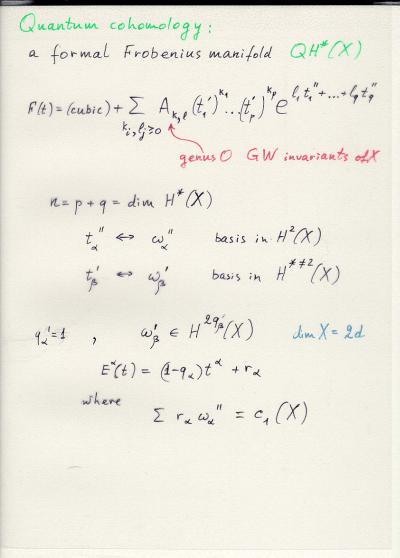 Quantum cohomology:
a formal Frobenius manifold QH*(X)
F(t) = (cubic) + Σ_{k_i, l_j ≥ 0} A_{k,l} (t'_1)^{k_1} ... (t'_p)^{k_p} e^{l_1 t''_1 + ... + l_q t''_q}
genus 0 GW invariants of X
n = p + q = dim H*(X)
t''_α ↔ ω''_α basis in H²(X)
t'_β ↔ ω'_β basis in H^{*≠2}(X)
q''_α = 1 , ω'_β ∈ H^{2q'_β}(X) dim X = 2d
E^α(t) = (1-q_α) t^α + r_α
where
Σ r_α ω''_α = c_1(X)